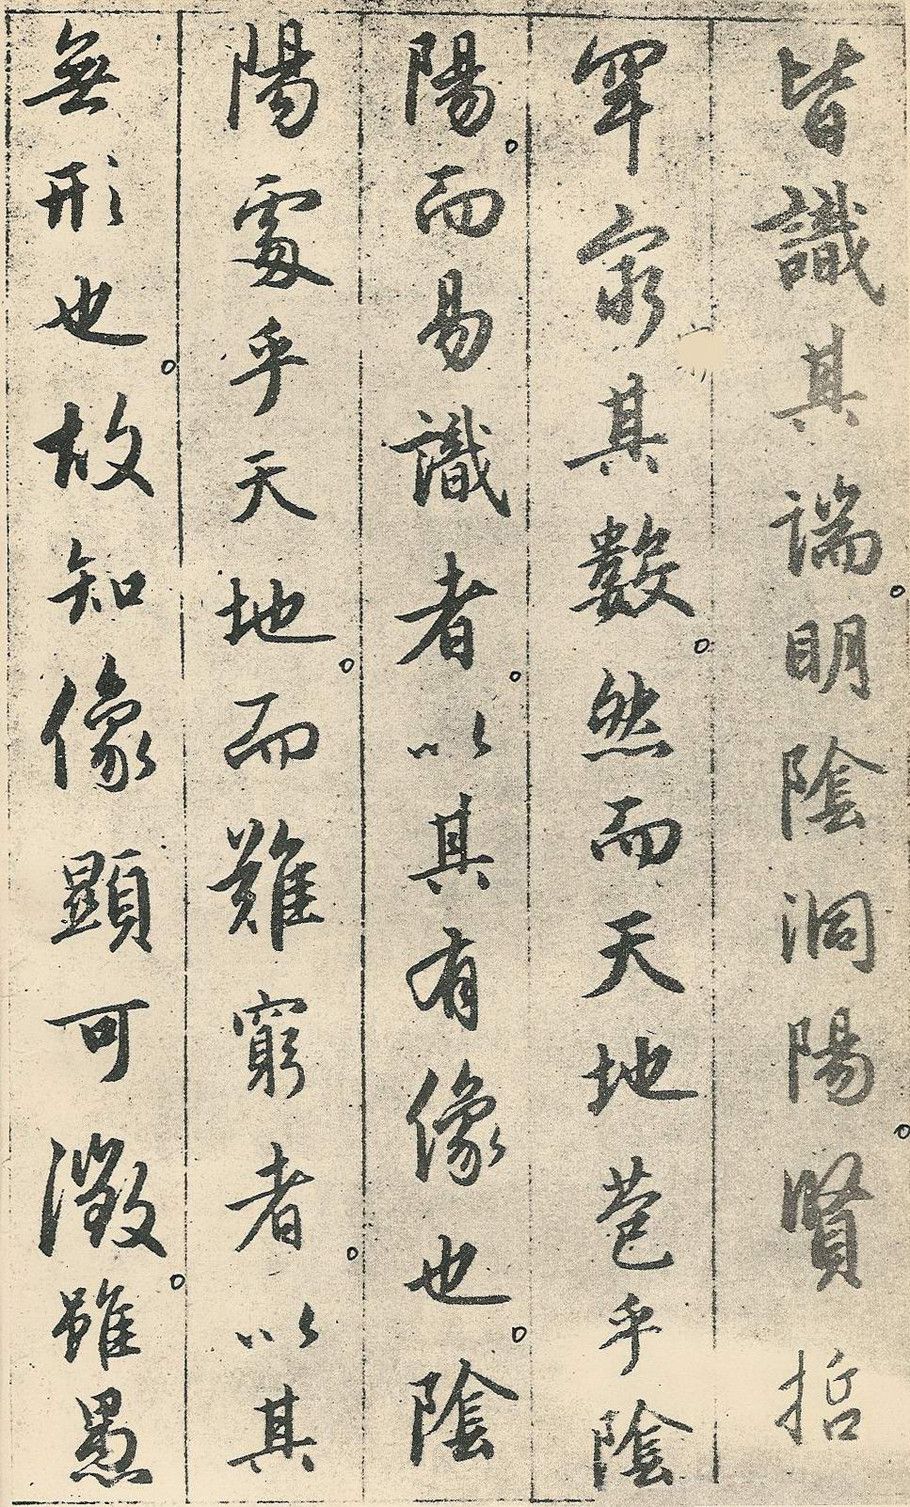 皆識其端。明陰洞陽。賢哲
罕窮其數。然而天地苞乎陰
陽。而易識者。以其有像也。陰
陽處乎天地。而難窮者。以其
無形也。故知像顯可徵。雖愚